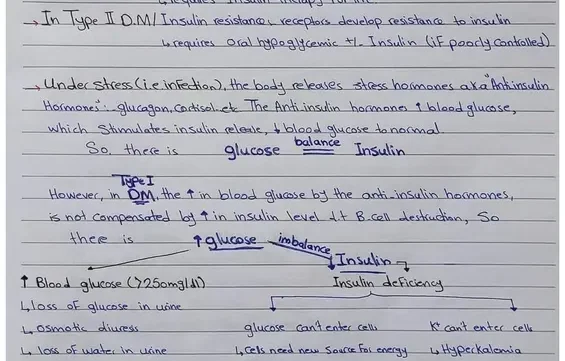 requires Insulin therapy for life
→ In Type II D.M / Insulin resistance, receptors develop resistance to insulin
↳ requires Oral hypoglycemic +/- Insulin (if poorly controlled)
→ Under stress (i.e infection), the body releases stress hormones a.k.a "Anti insulin
Hormones" :- glucagon, Cortisol..etc The Anti insulin hormones ↑ blood glucose,
which stimulates insulin release, ↓ blood glucose to normal.
So, there is glucose balance Insulin
Type I
However, in DM, the ↑ in blood glucose by the anti-insulin hormones,
is not compensated by ↑ in insulin level d.t B.cell destruction, So
there is ↑ glucose imbalance ↓ Insulin
↑ Blood glucose (>250mg/dl) Insulin deficiency
↳ loss of glucose in urine
↳ osmotic diuresis glucose can't enter cells K+ can't enter cells
↳ loss of water in urine ↳ Cells need new source for energy ↳ Hyperkalemia